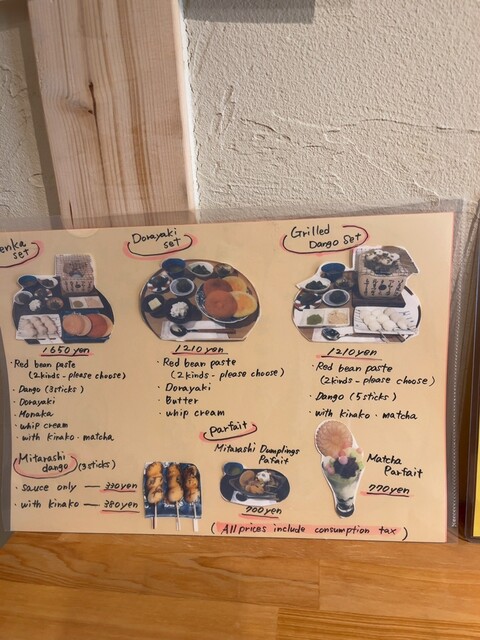 set
1650 yen
・Red bean paste
(2kinds - please choose)
・Dango (3sticks)
・Dorayaki
・Monaka
・whip cream
・with kinako・matcha
Dorayaki
set
1210 yen
・Red bean paste
(2kinds - please choose)
・Dorayaki
・Butter
・whip cream
Grilled
Dango set
1210 yen
・Red bean paste
(2kinds - please choose)
・Dango (5sticks)
・with kinako・matcha
Mitarashi
dango (3sticks)
・sauce only — 330yen
・with kinako — 380yen
Parfait
Mitarashi Dumplings
Pafait
700yen
Matcha
Parfait
770yen
(All prices include consumption tax)